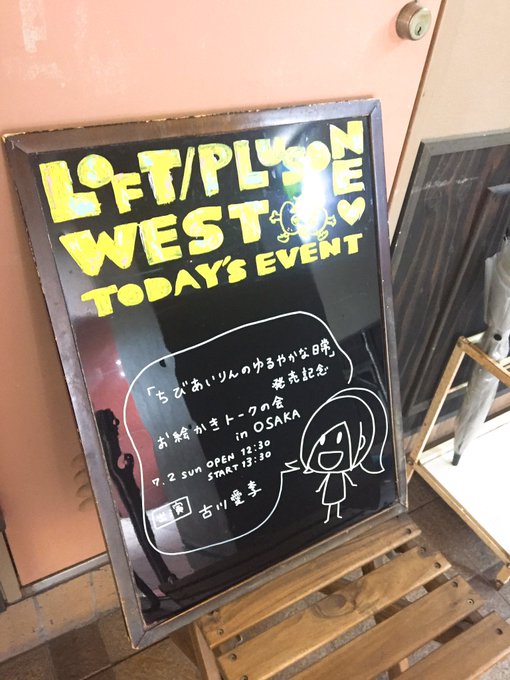 LOFT/PLUSONE
WEST
TODAY'S EVENT
「ちびあいりんのゆるやかな日常」
発売記念
お絵かきトークの会
in OSAKA
7.2 sun OPEN 12:30
START 13:30
古川愛李